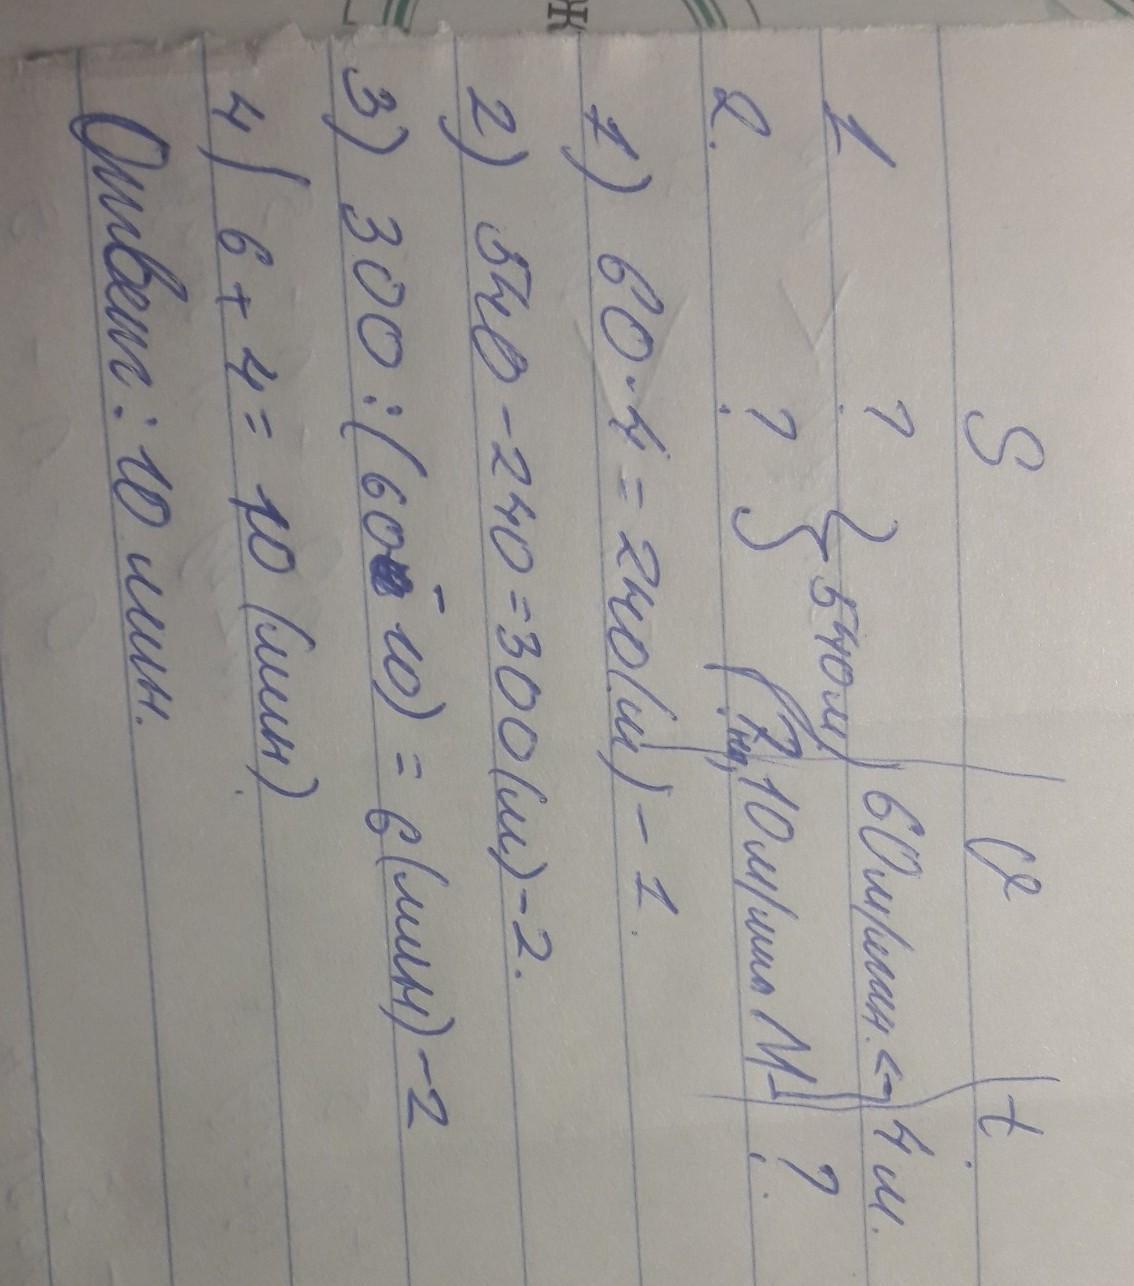 Ж
S v t
1 ? } 540м 60м/мин. 4м.
2. ? } (? на 10м/мин М ?
1) 60·4=240(м)-1
2) 540-240=300(м)-2.
3) 300:(60-10)=6(мин)-2
4) 6+4=10(мин)
Ответ: 10 мин.